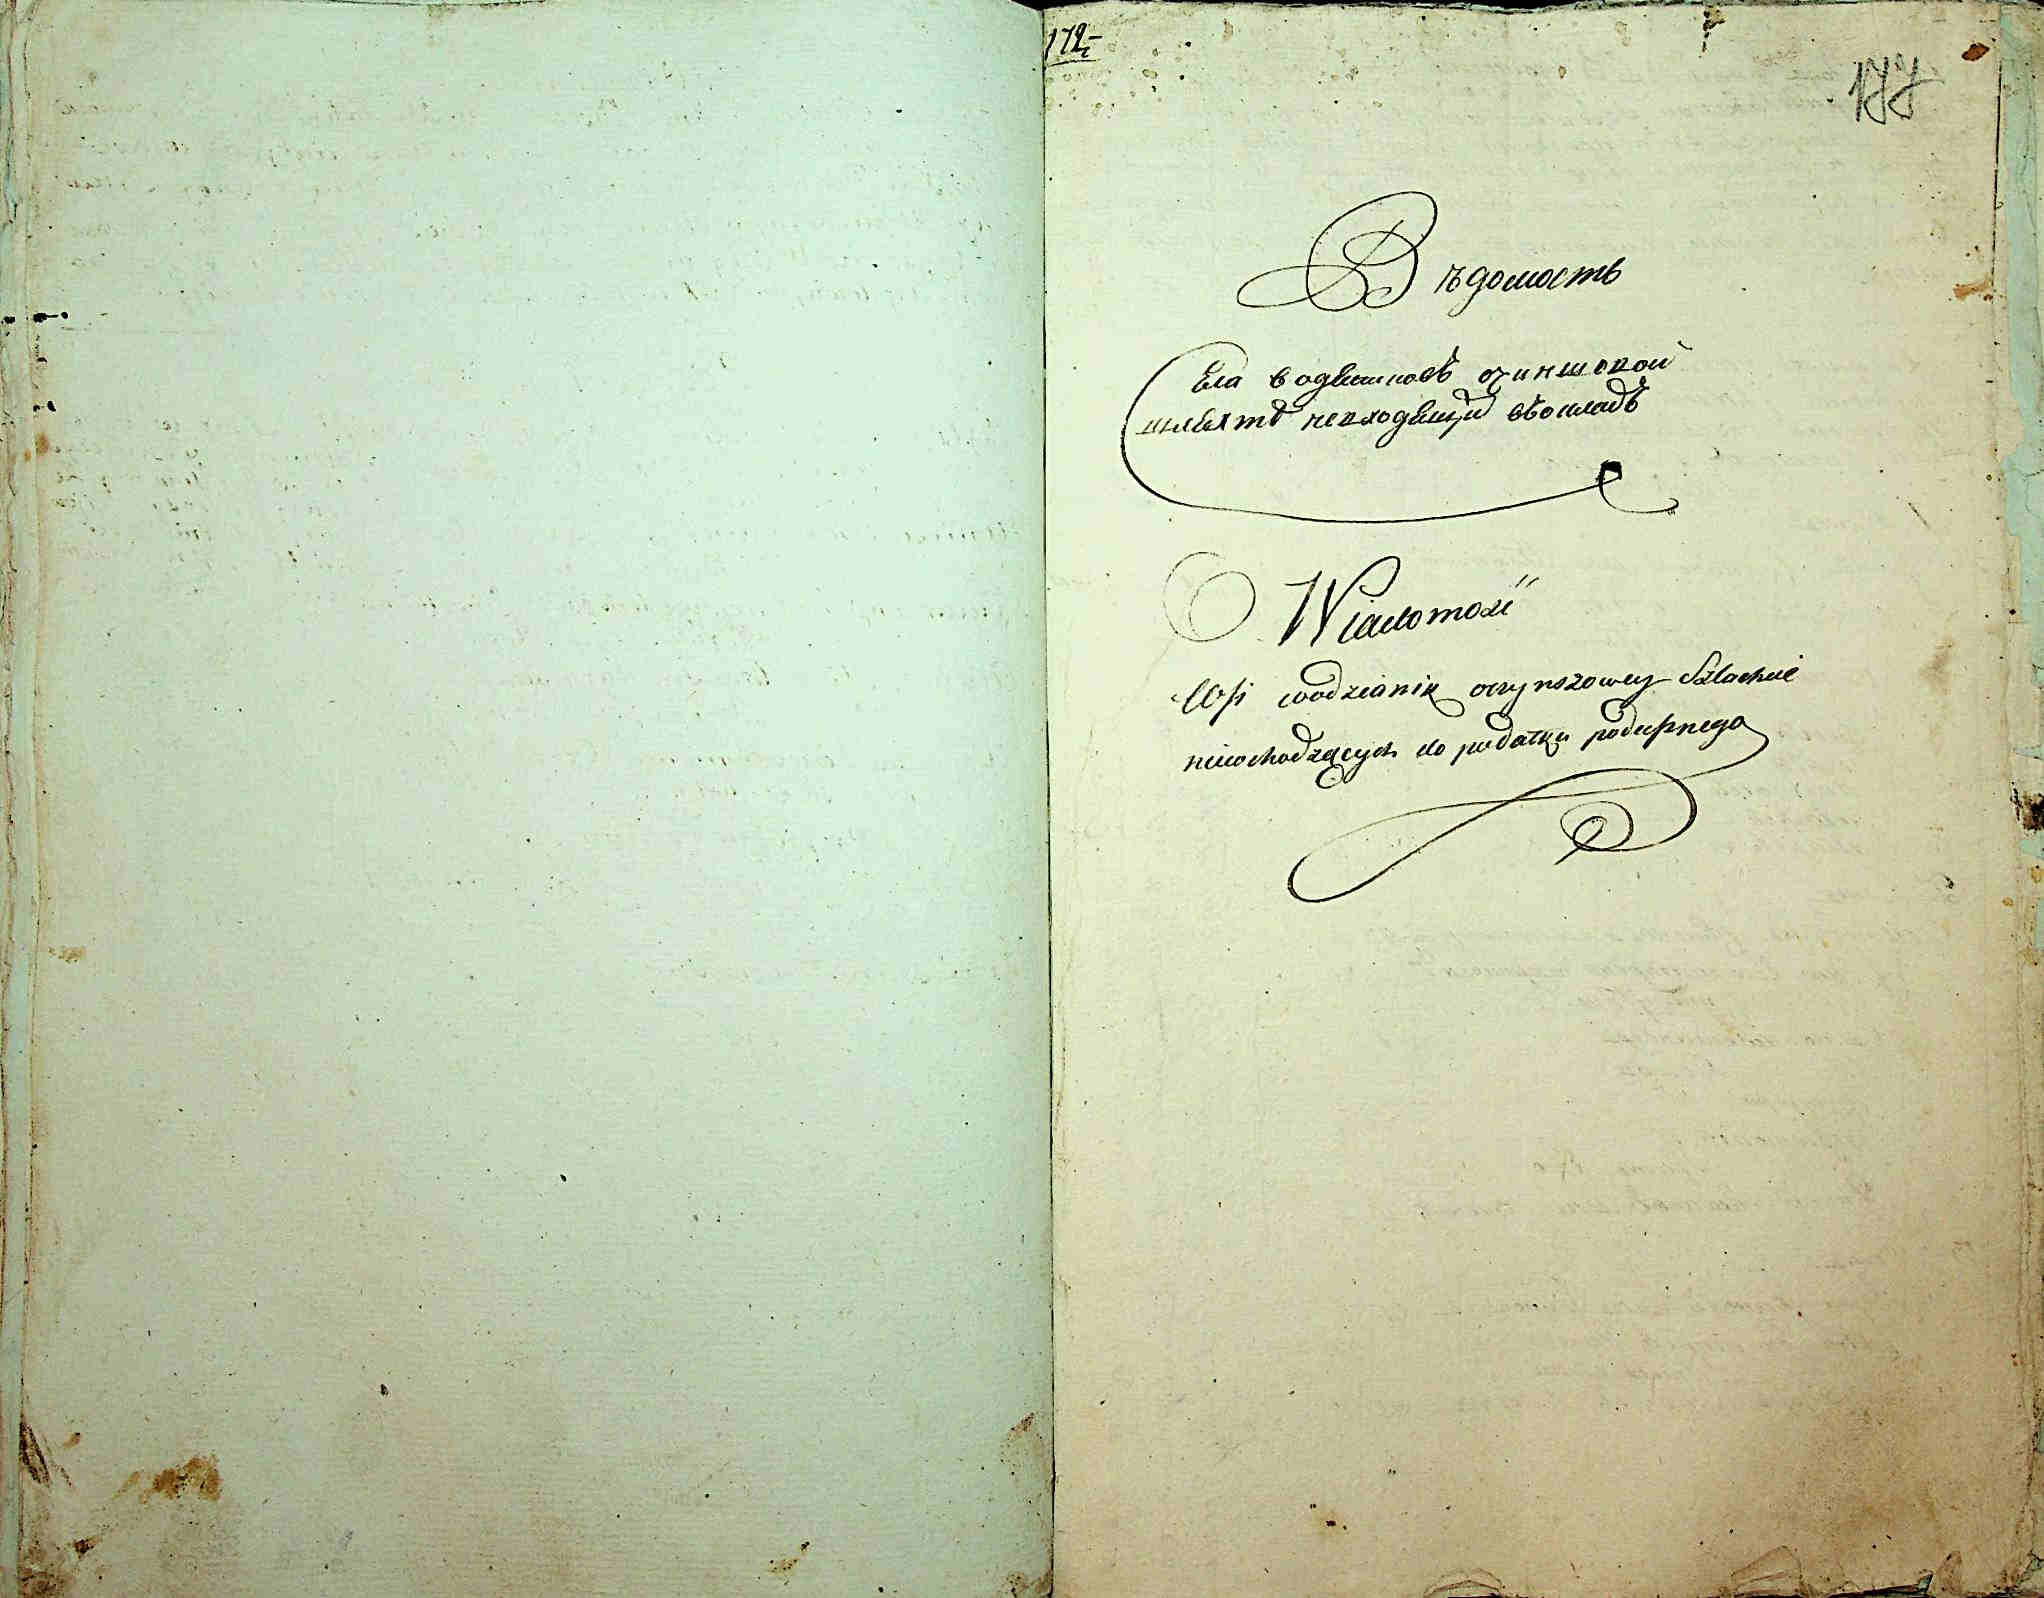 172
177
Вѣдомость
Ела водвишковѣ очиншовой
шляхтѣ невходящей въокладѣ
Wiadomość
Wsi wodzianik oczynszowey Szlachcie
niewchodzących do podatku podusznego